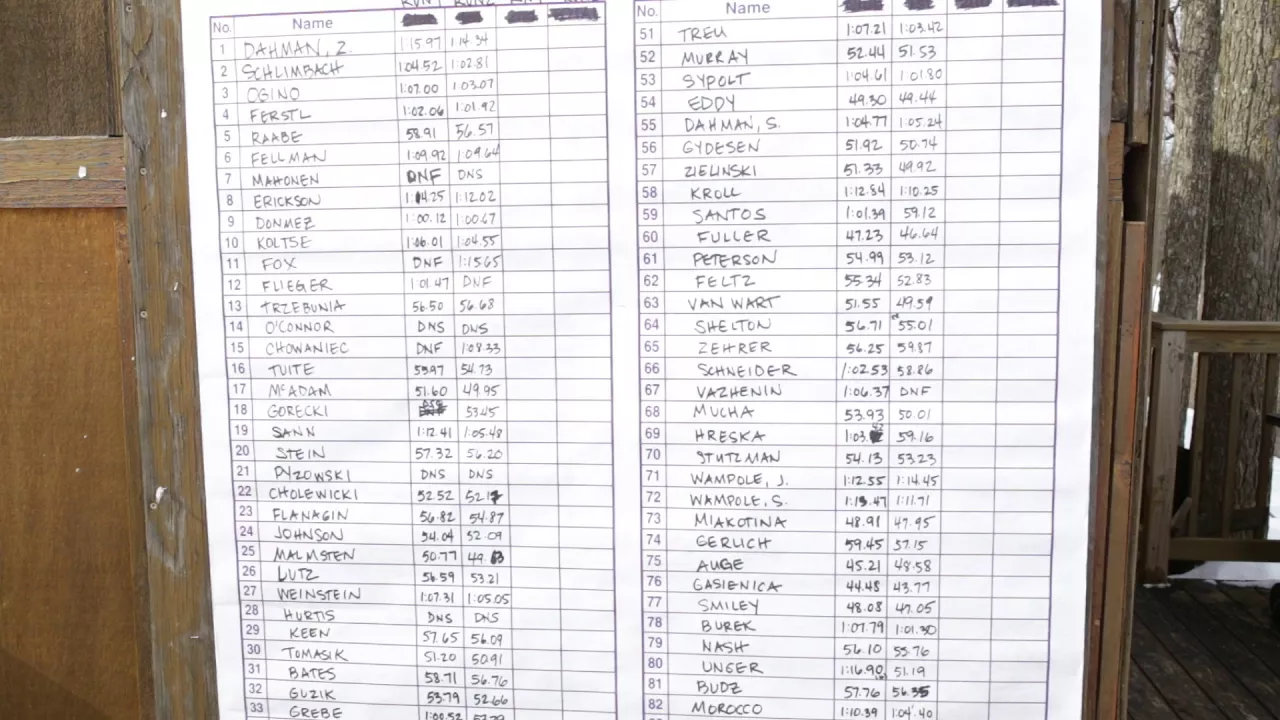 No. Name RUN 1 RUN 2
1 DAHMAN, Z. 1:15.97 1:14.34
2 SCHLIMBACH 1:04.52 1:02.81
3 OGINO 1:07.00 1:03.07
4 FERSTL 1:02.06 1:01.92
5 RAABE 58.91 56.57
6 FELLMAN 1:09.92 1:09.64
7 MAHONEN DNF DNS
8 ERICKSON 1:14.25 1:12.02
9 DONMEZ 1:00.12 1:00.67
10 KOLTSE 1:06.01 1:04.55
11 FOX DNF 1:15.65
12 FLIEGER 1:01.47 DNF
13 TRZEBUNIA 56.50 56.68
14 O'CONNOR DNS DNS
15 CHOWANIEC DNF 1:08.33
16 TUITE 53.97 54.73
17 McADAM 51.60 49.95
18 GORECKI 53.45
19 SANN 1:12.41 1:05.48
20 STEIN 57.32 56.20
21 PYZOWSKI DNS DNS
22 CHOLEWICKI 52.52 52.17
23 FLANAGIN 56.82 54.87
24 JOHNSON 54.04 52.09
25 MALMSTEN 50.77
26 LUTZ 56.59 53.21
27 WEINSTEIN 1:07.31 1:05.05
28 HURTIS DNS DNS
29 KEEN 57.65 56.09
30 TOMASIK 51.20 50.91
31 BATES 58.71 56.76
32 GUZIK 53.79 52.66
33 GREBE 1:00.52
No. Name
51 TREU 1:07.21 1:03.42
52 MURRAY 52.44 51.53
53 SYPOLT 1:04.61 1:01.80
54 EDDY 49.30 49.44
55 DAHMAN, S. 1:04.77 1:05.24
56 GYDESEN 51.92 50.74
57 ZIELINSKI 51.33 49.92
58 KROLL 1:12.84 1:10.25
59 SANTOS 1:01.39 59.12
60 FULLER 47.23 46.64
61 PETERSON 54.99 53.12
62 FELTZ 55.34 52.83
63 VAN WART 51.55 49.59
64 SHELTON 56.71 55.01
65 ZEHRER 56.25 59.87
66 SCHNEIDER 1:02.53 58.86
67 VAZHENIN 1:06.37 DNF
68 MUCHA 53.93 50.01
69 HRESKA 59.16
70 STUTZMAN 54.13 53.23
71 WAMPOLE, J. 1:12.55 1:14.45
72 WAMPOLE, S. 1:13.47 1:11.71
73 MIAKOTINA 48.91 47.95
74 GERLICH 59.45 57.15
75 AUGE 45.21 48.58
76 GASIENICA 44.48 43.77
77 SMILEY 48.08 47.05
78 BUREK 1:07.79 1:01.30
79 NASH 56.10 55.76
80 UNGER 1:16.90 51.19
81 BUDZ 57.76 56.35
82 MOROCCO 1:10.39 1:04.40